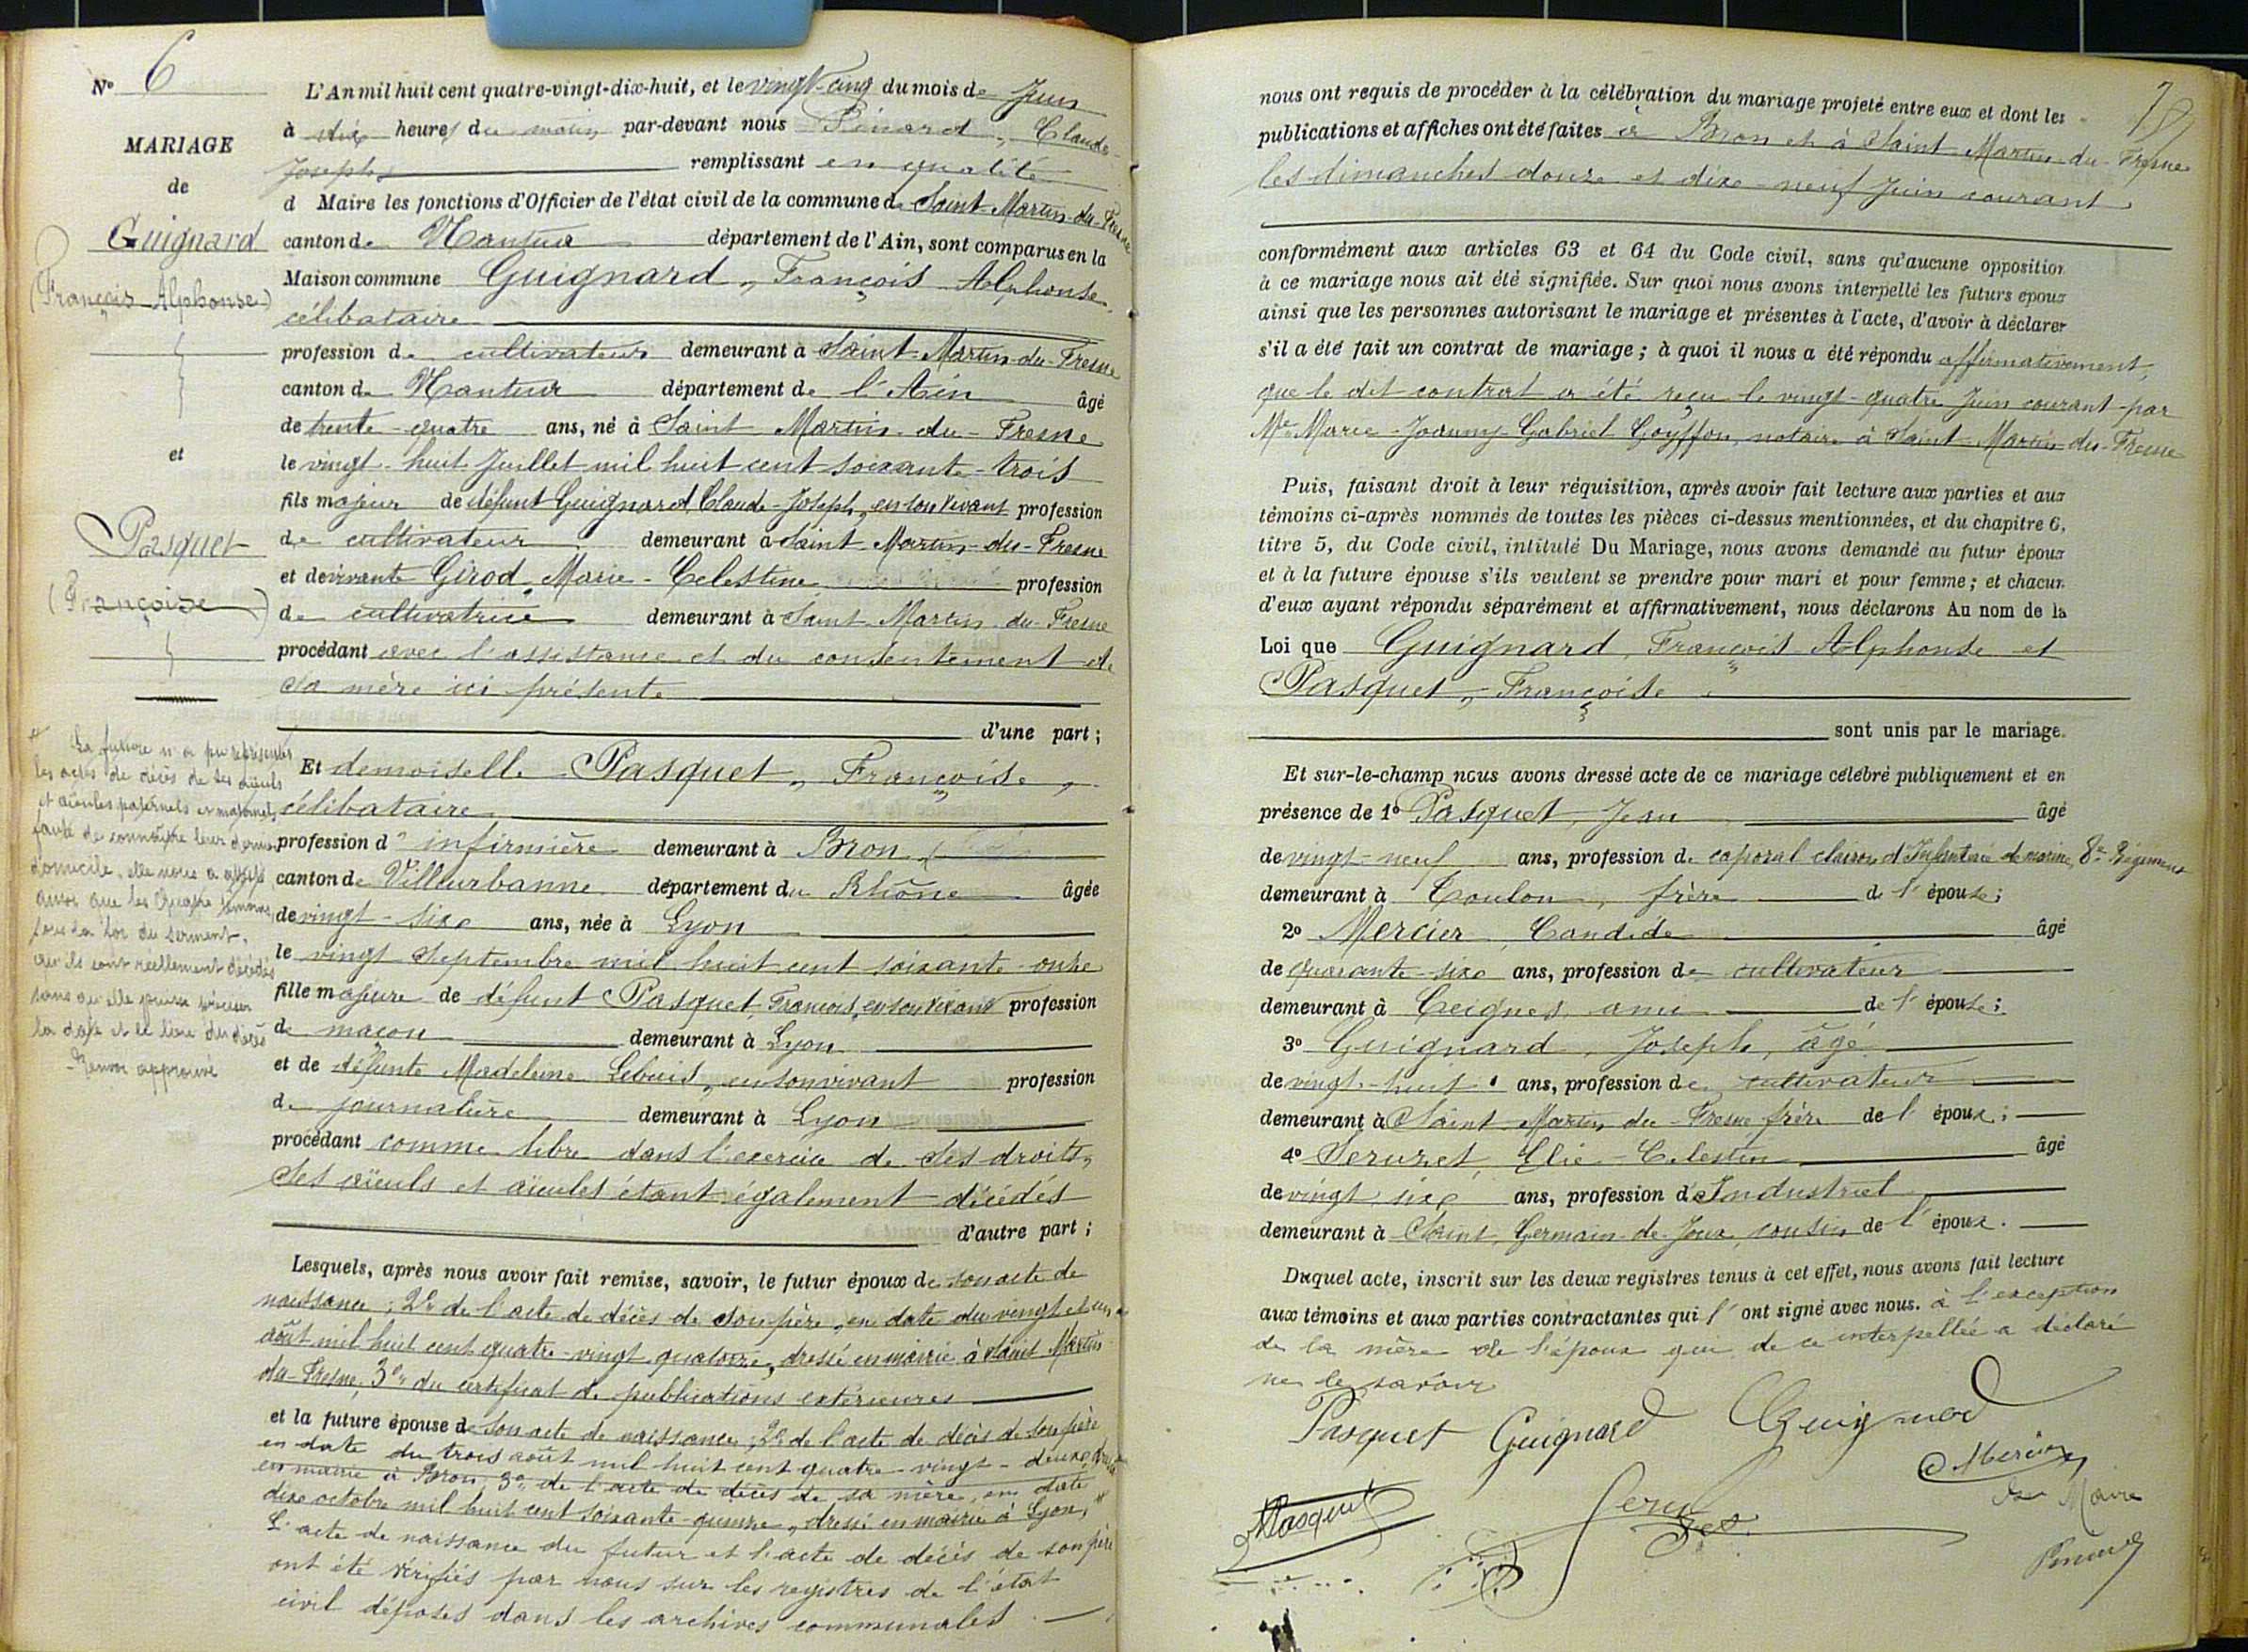 Nº 6
MARIAGE
de
Guignard
(François Alphonse)
et
Pasquet
(Françoise)
La future n'a pu représenter
les actes de décès de ses aïeuls
et aïeules paternels et maternels
faute de connaître leur dernier
domicile, elle nous a
ainsi que les quatre témoins
sous la foi du serment,
qu'ils sont réellement décédés
sans qu'elle puisse préciser
la date et le lieu du décès
Renvoi approuvé
L'An mil huit cent quatre-vingt-dix-huit, et le vingt-cinq du mois de Juin
à dix heures du matin par-devant nous Pinard, Claude
Joseph remplissant en qualité
d Maire les fonctions d'Officier de l'état civil de la commune de Saint-Martin-du-Fresne
canton de Nantua département de l'Ain, sont comparus en la
Maison commune Guignard, François Alphonse
célibataire
profession de cultivateur demeurant à Saint-Martin-du-Fresne
canton de Nantua département de l'Ain âgé
de trente-quatre ans, né à Saint Martin-du-Fresne
le vingt-huit Juillet mil huit cent soixante-trois
fils majeur de défunt Guignard Claude-Joseph, en son vivant profession
de cultivateur demeurant à Saint Martin-du-Fresne
et de vivante Girod Marie-Celestine profession
de cultivatrice demeurant à Saint Martin-du-Fresne
procédant avec l'assistance et du consentement de
sa mère ici présente
d'une part ;
Et demoiselle Pasquet, Françoise,
célibataire
profession d'infirmière demeurant à Bron
canton de Villeurbanne département du Rhône âgée
de vingt-six ans, née à Lyon
le vingt Septembre mil huit cent soixante-onze
fille majeure de défunt Pasquet, François, en son vivant profession
de maçon demeurant à Lyon
et de défunte Madeleine Lebuis, en son vivant profession
de journalière demeurant à Lyon
procédant comme libre dans l'exercice de ses droits,
ses aïeuls et aïeules étant également décédés
d'autre part ;
Lesquels, après nous avoir fait remise, savoir, le futur époux de son acte de
naissance ; 2º de l'acte de décès de son père, en date du vingt et un
août mil huit cent quatre-vingt quatorze, dressé en mairie à Saint Martin
du-Fresne, 3º du certificat de publications extérieures
et la future épouse de son acte de naissance ; 2º de l'acte de décès de son père
en date du trois août mil huit cent quatre-vingt-deux, dressé
en mairie à Bron, 3º de l'acte de décès de sa mère, en date
dix octobre mil huit cent soixante-quinze, dressé en mairie à Lyon,
L'acte de naissance du futur et l'acte de décès de son père
ont été vérifiés par nous sur les registres de l'état
civil déposés dans les archives communales.
nous ont requis de procéder à la célébration du mariage projeté entre eux et dont les
publications et affiches ont été faites à Bron et à Saint-Martin-du-Fresne
les dimanches douze et dix-neuf Juin courant
conformément aux articles 63 et 64 du Code civil, sans qu'aucune opposition
à ce mariage nous ait été signifiée. Sur quoi nous avons interpellé les futurs époux
ainsi que les personnes autorisant le mariage et présentes à l'acte, d'avoir à déclarer
s'il a été fait un contrat de mariage ; à quoi il nous a été répondu affirmativement,
que le dit contrat a été reçu le vingt-quatre Juin courant par
Me Marie-Joanny-Gabriel Goyffon, notaire à Saint-Martin-du-Fresne
Puis, faisant droit à leur réquisition, après avoir fait lecture aux parties et aux
témoins ci-après nommés de toutes les pièces ci-dessus mentionnées, et du chapitre 6,
titre 5, du Code civil, intitulé Du Mariage, nous avons demandé au futur époux
et à la future épouse s'ils veulent se prendre pour mari et pour femme ; et chacun
d'eux ayant répondu séparément et affirmativement, nous déclarons Au nom de la
Loi que Guignard, François Alphonse et
Pasquet, Françoise
sont unis par le mariage.
Et sur-le-champ nous avons dressé acte de ce mariage célébré publiquement et en
présence de 1º Pasquet, Jean âgé
de vingt-neuf ans, profession de caporal clairon d'Infanterie de marine, 8e Régiment
demeurant à Toulon, frère de l'épouse ;
2º Mercier Candide âgé
de quarante-six ans, profession de cultivateur
demeurant à Ceignes, ami de l'épouse ;
3º Guignard, Joseph, âgé
de vingt-huit ans, profession de cultivateur
demeurant à Saint Martin du Fresne frère de l'époux ;
4º Seruzet, Elie-Celestin âgé
de vingt six ans, profession d'Industriel
demeurant à Saint Germain-de-Joux, cousin de l'époux.
Duquel acte, inscrit sur les deux registres tenus à cet effet, nous avons fait lecture
aux témoins et aux parties contractantes qui l'ont signé avec nous. à l'exception
de la mère de l'époux qui de ce interpellée a déclaré
ne le savoir
Pasquet Guignard Guignard
Mercier
Pasquet
Le Maire
Pinard